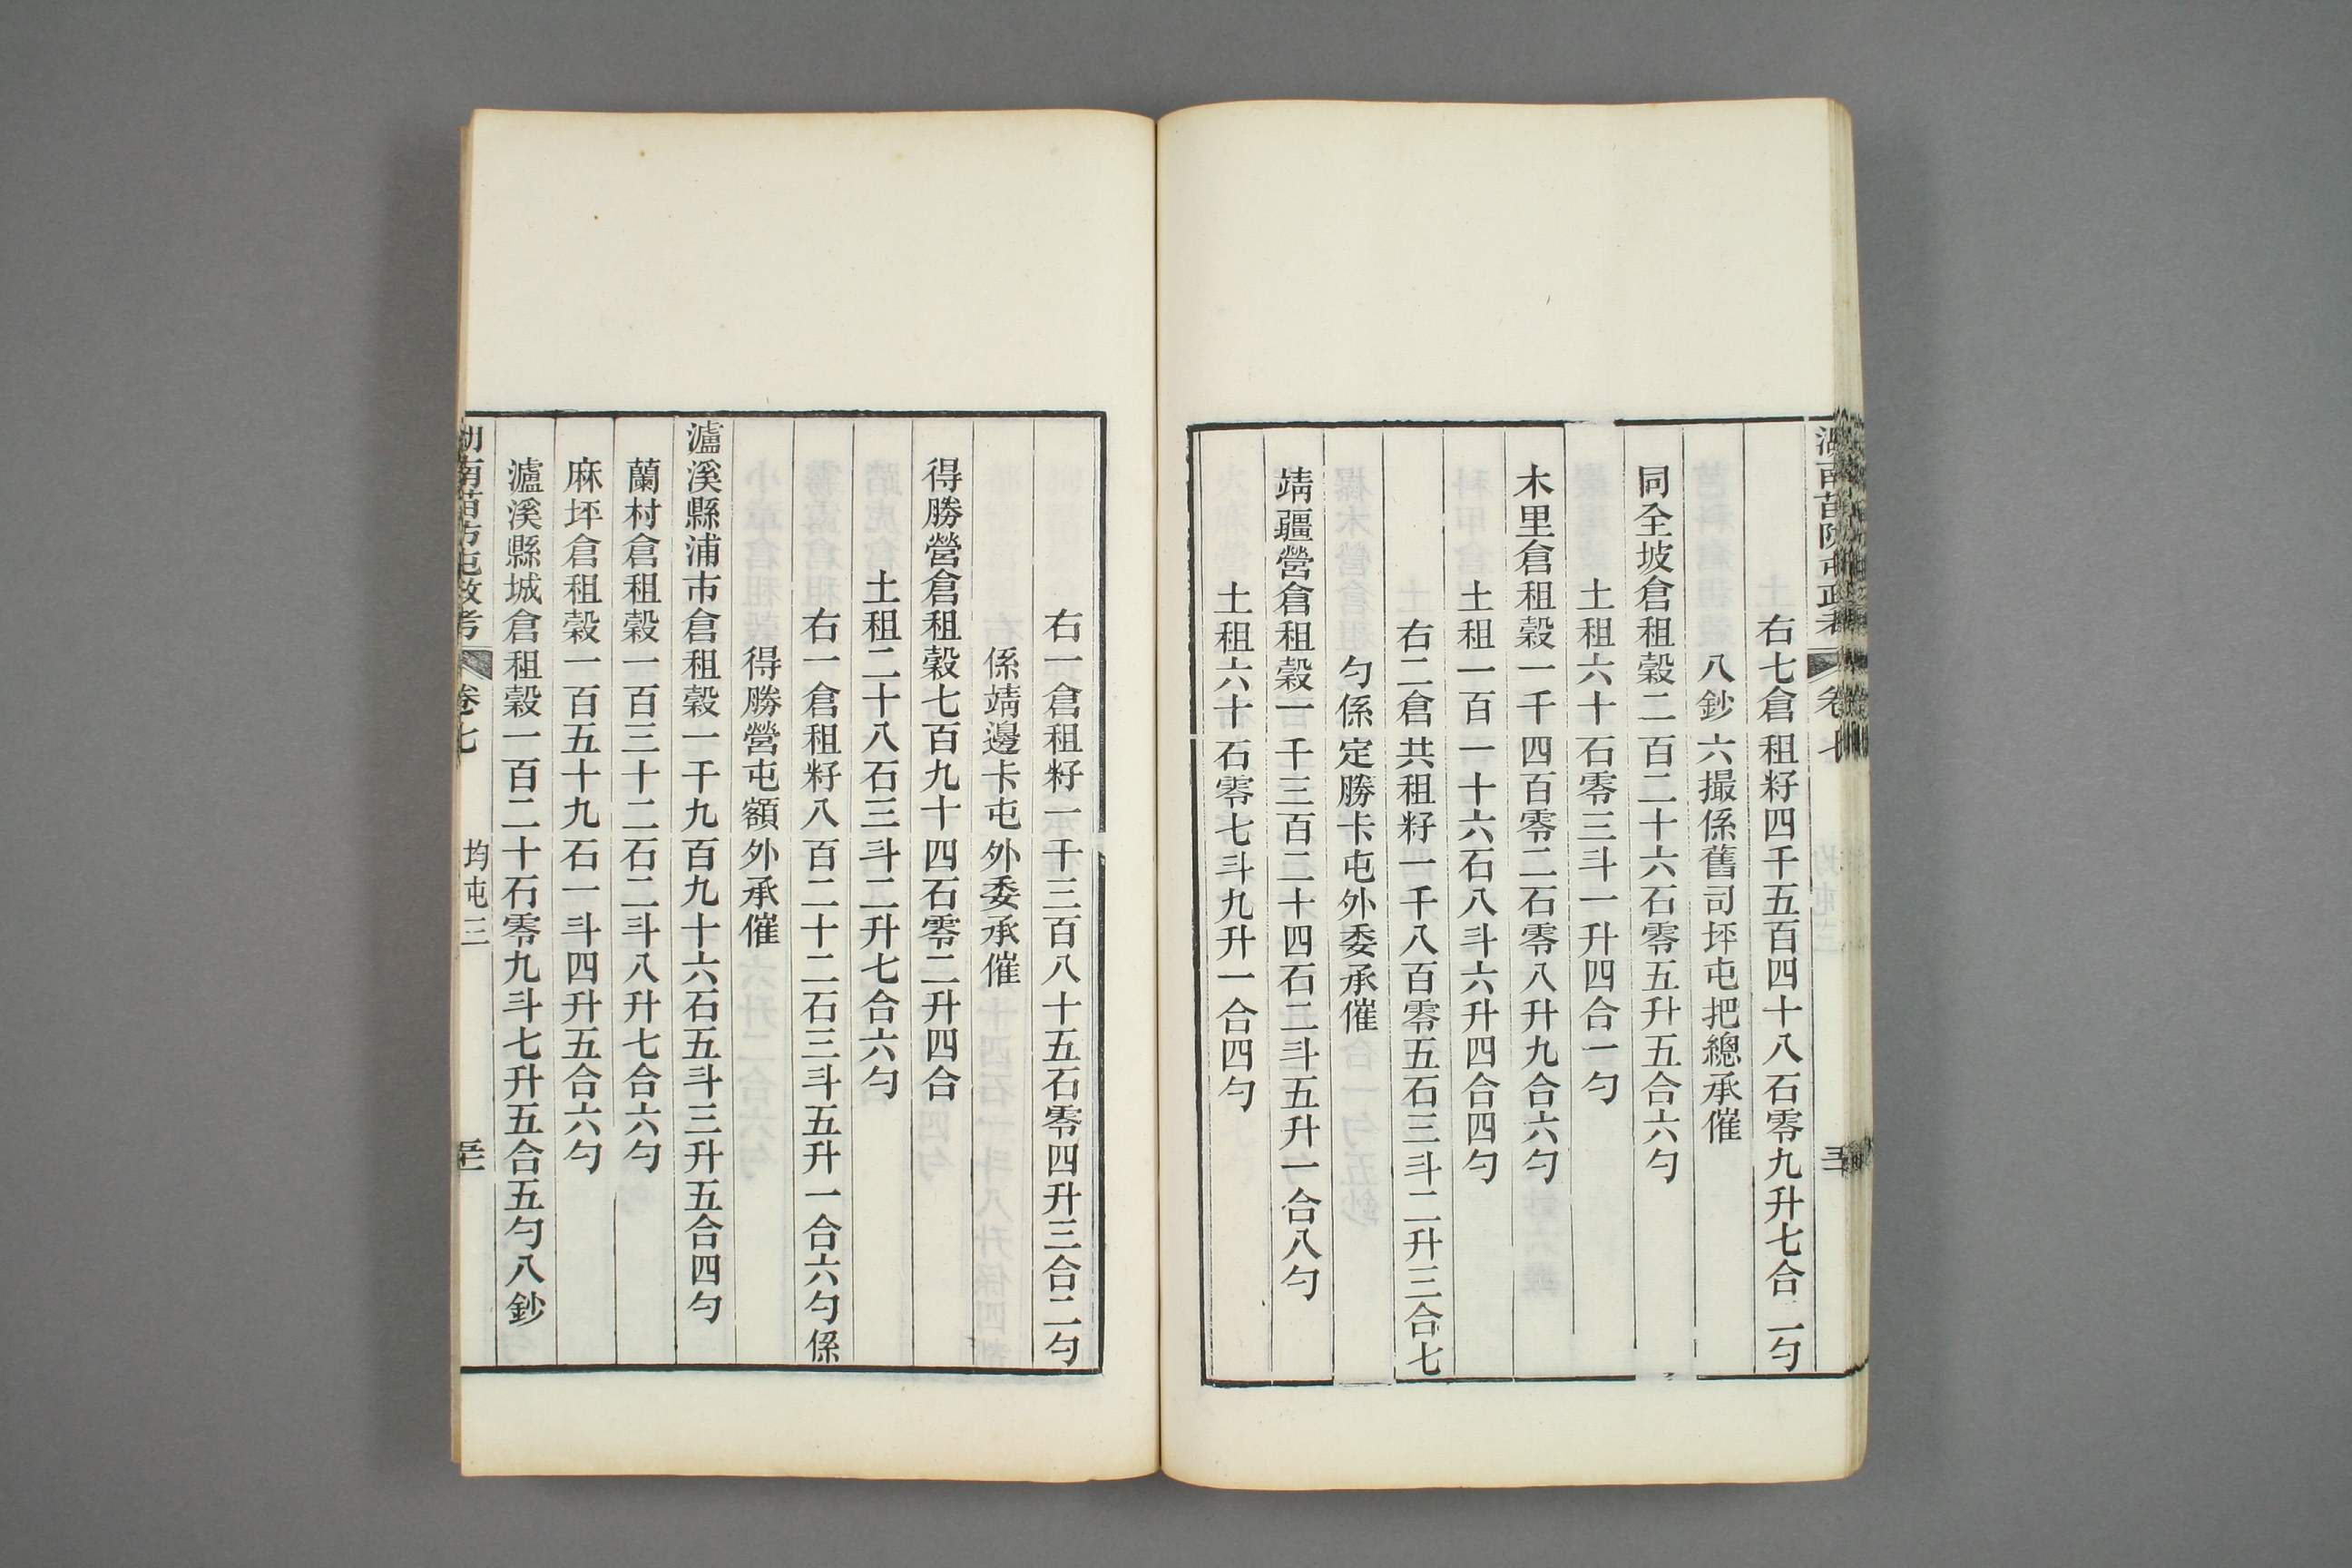 右七倉租籽四千五百四十八石零九升七合二勺
八鈔六撮係舊司坪屯把總承催
同全坡倉租穀二百二十六石零五升五合六勺
土租六十石零三斗一升四合一勺
木里倉租穀一千四百零二石零八升九合六勺
土租一百一十六石八斗六升四合四勺
右二倉共租籽一千八百零五石三斗二升三合七
勺係定勝卡屯外委承催
靖疆營倉租穀一千三百二十四石二斗五升一合八勺
土租六十石零七斗九升一合四勺
右一倉租籽一千三百八十五石零四升三合二勺
係靖邊卡屯外委承催
得勝營倉租穀七百九十四石零二升四合
土租二十八石三斗二升七合六勺
右一倉租籽八百二十二石三斗五升一合六勺係
得勝營屯額外承催
瀘溪縣浦市倉租穀一千九百九十六石五斗三升五合四勺
蘭村倉租穀一百三十二石二斗八升七合六勺
麻坪倉租穀一百五十九石一斗四升五合六勺
瀘溪縣城倉租穀一百二十石零九斗七升五合五勺八鈔
湖南苗防屯政考 卷七 均屯三